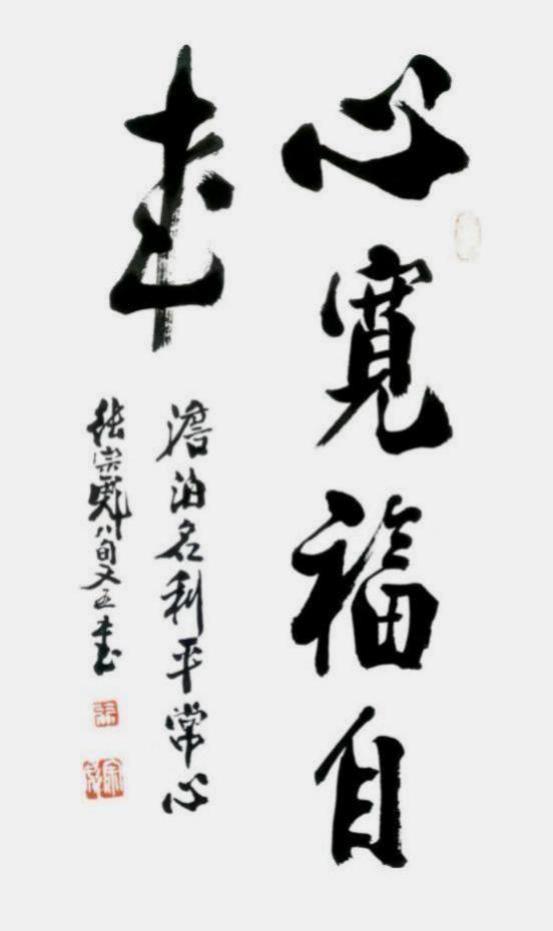 心寬福自
來
澹泊名利平常心
張宗彪八旬又五書